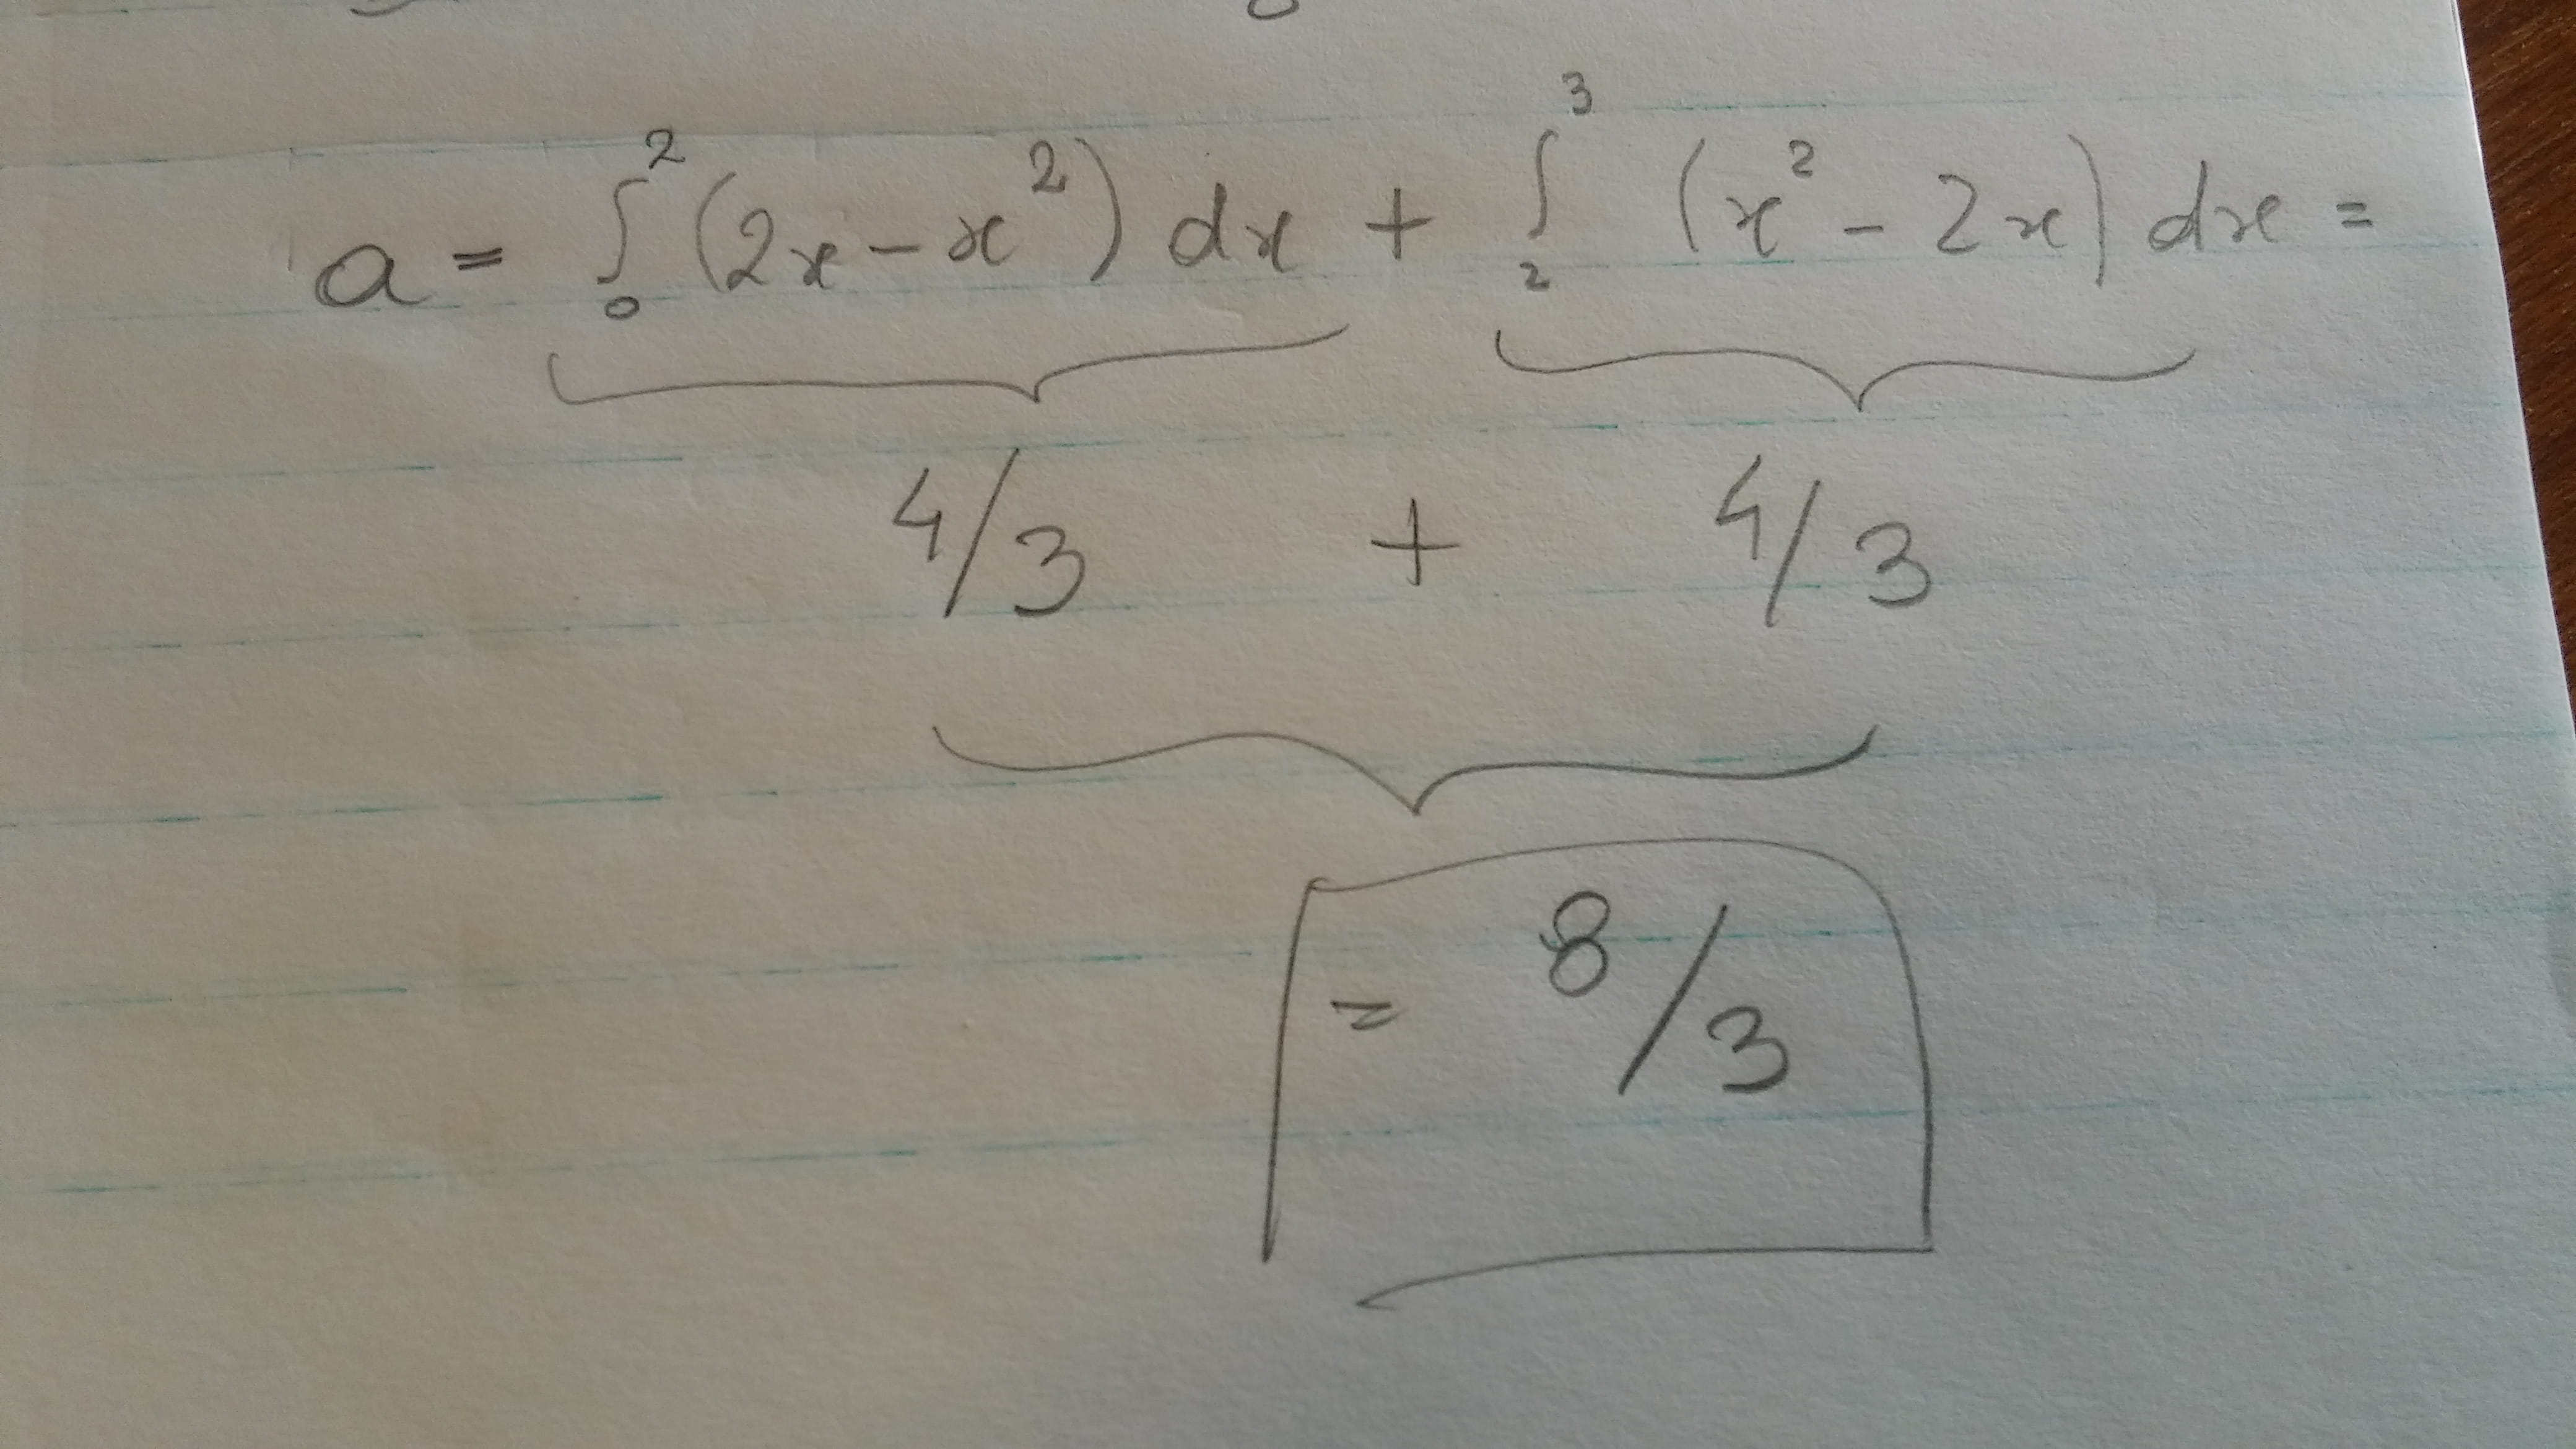 a = ∫₀² (2x − x²) dx + ∫₂³ (x² − 2x) dx =
4/3 + 4/3
= 8/3